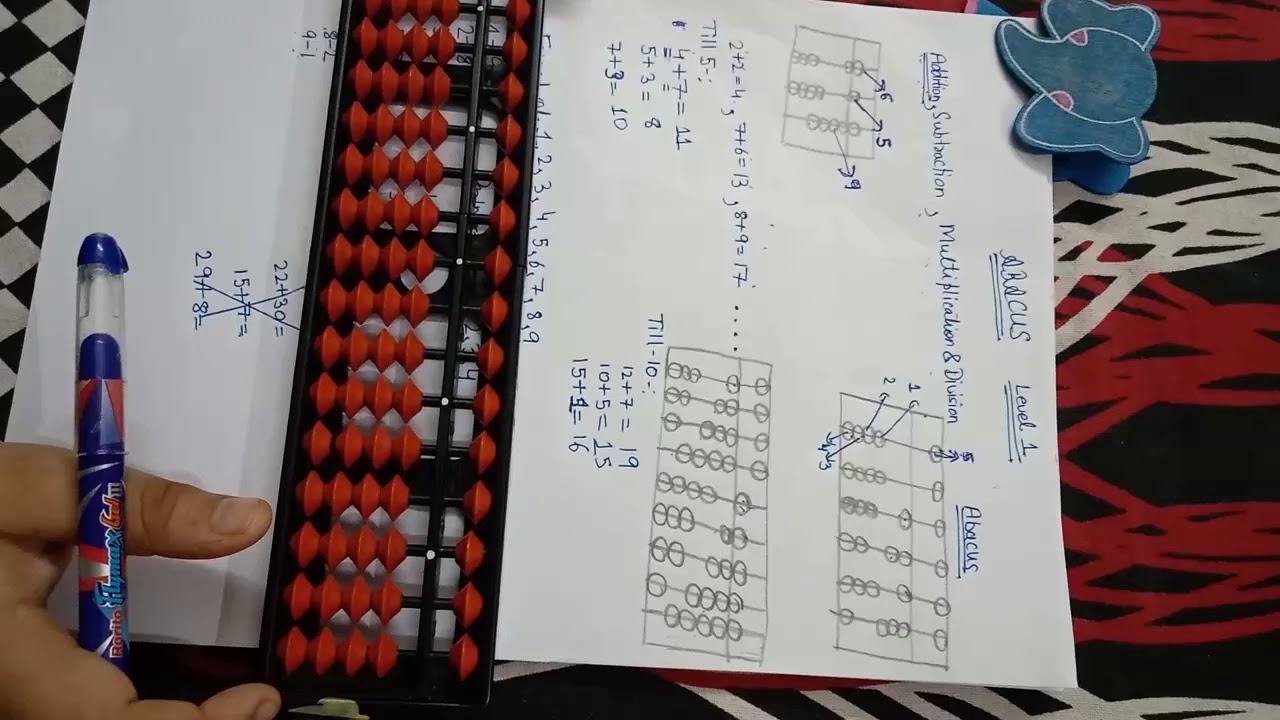 ABACUS Level 1
Abacus
Addition, Subtraction, Multiplication & Division
6
5
9
1
2
3
4
5
2+2=4, 7+6=13, 8+9=17 ....
Till 5-:
4+7= 11
5+3= 8
7+3= 10
Till-10-:
12+7= 19
10+5= 15
15+1= 16
1, 2, 3, 4, 5, 6, 7, 8, 9
2, 3
4
8-2
9-1
22+30=
15+7=
29+8=
Rorito Flymax Gel